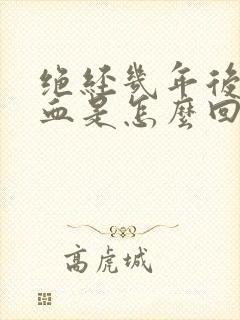 绝经几年後
血是怎麼回
高虎城